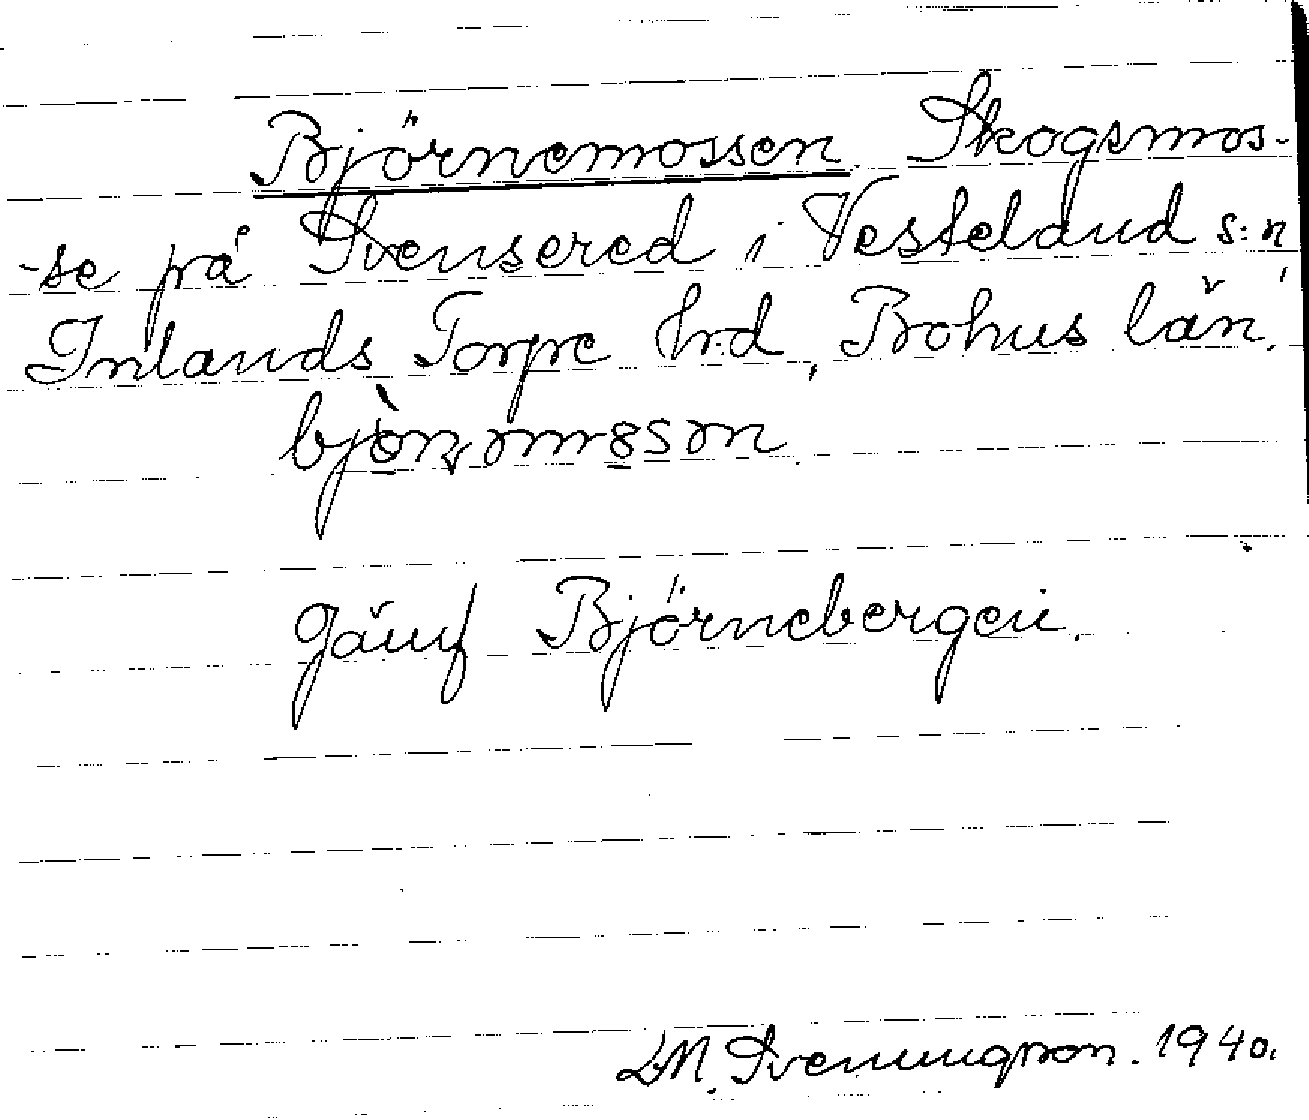 Björnemossen. Skogsmos-
-se på Svensered i Vesteland s:n
Inlands Torpe hrd, Bohus län.
Jämf Björnebergen.
LM. Svenungsson. 1940.